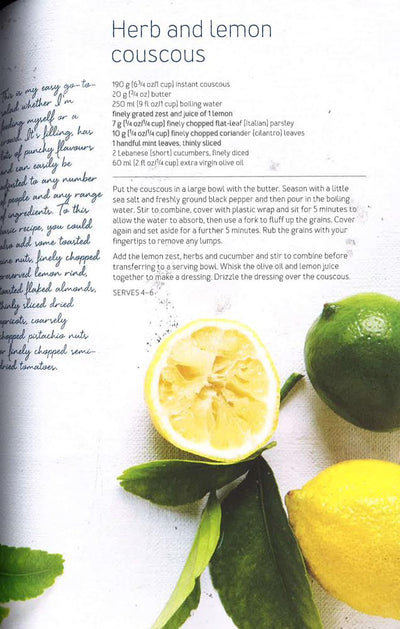 Herb and lemon
couscous
190 g (6¾ oz/1 cup) instant couscous
20 g (¾ oz) butter
250 ml (9 fl oz/1 cup) boiling water
finely grated zest and juice of 1 lemon
7 g (¼ oz/¼ cup) finely chopped flat-leaf (Italian) parsley
10 g (¼ oz/¼ cup) finely chopped coriander (cilantro) leaves
1 handful mint leaves, thinly sliced
2 Lebanese (short) cucumbers, finely diced
60 ml (2 fl oz/¼ cup) extra virgin olive oil
Put the couscous in a large bowl with the butter. Season with a little
sea salt and freshly ground black pepper and then pour in the boiling
water. Stir to combine, cover with plastic wrap and sit for 5 minutes to
allow the water to absorb, then use a fork to fluff up the grains. Cover
again and set aside for a further 5 minutes. Rub the grains with your
fingertips to remove any lumps.
Add the lemon zest, herbs and cucumber and stir to combine before
transferring to a serving bowl. Whisk the olive oil and lemon juice
together to make a dressing. Drizzle the dressing over the couscous.
SERVES 4-6
This is my easy go-to
salad whether I'm
feeding myself or a
crowd. It's filling, has
lots of punchy flavours
and can easily be
adjusted to any number
of people and any range
of ingredients. To this
basic recipe, you could
also add some toasted
pine nuts, finely chopped
preserved lemon rind,
toasted flaked almonds,
thinly sliced dried
apricots, coarsely
chopped pistachio nuts
or finely chopped semi-
dried tomatoes.